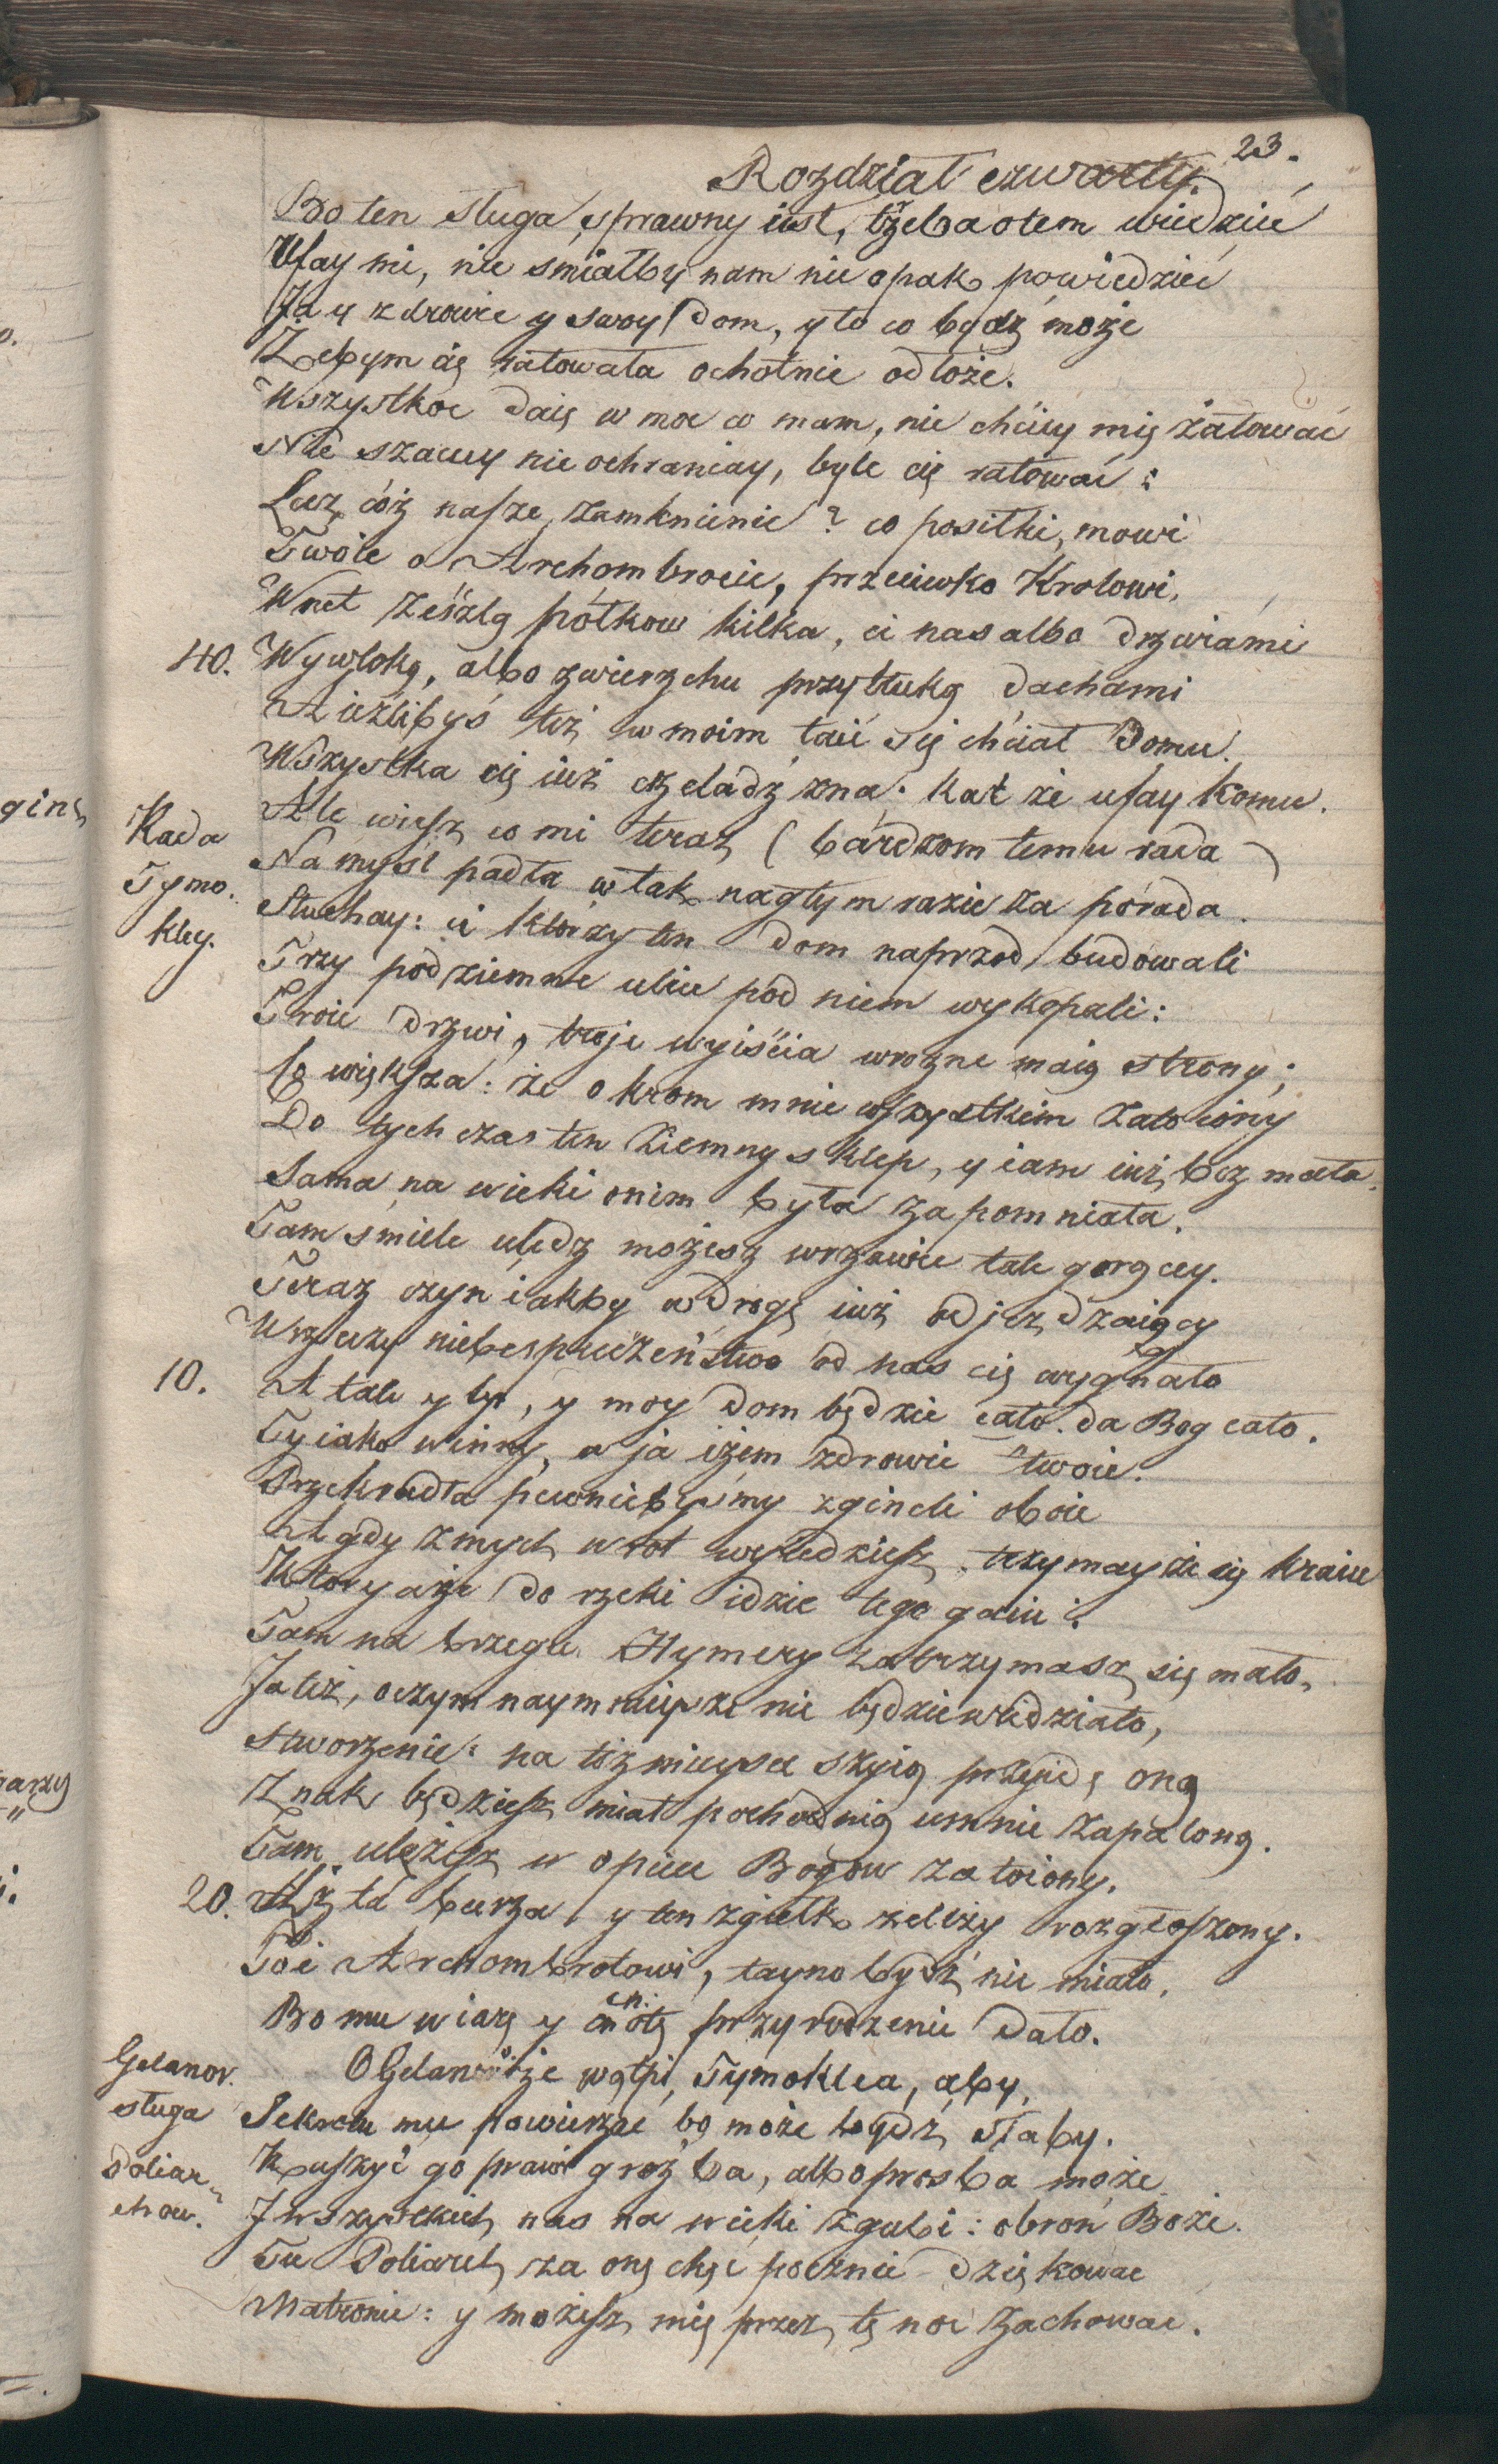 23.
Rozdział czwarty.
Bo ten sługa sprawny iest, trzeba otem wiedzieć
Ufay mi, nie smiałby nam nic opak powiedzieć
Ja y zdrowie y swoy dom, y to co bydz może
Zebym cię ratowała ochotnie odłoże.
Wszystkoc daię w moc co mam, nie chciey mię żałować
Nic szacuy nie ochraniay, byle cię ratować:
Lecz coż nasze zamknienie? co posiłki, mowi
Twoie o Archombrocie, przeciwko Krolowi,
Wnet ześzlą połkow kilka, ci nas albo drzwiami
40. Wywloką, albo zwierzchu przytłuką dachami
A ieźlibyś też w moim taić się chciał Domu.
Wszystka cię iuż czeladź zna. kat że ufay komu.
Rada Tymo. kley.
Ale wiesz co mi teraz (bardzom temu rada)
Na myśl padła w tak nagłym razie za porada.
Słuchay: ci ktorzy ten dom naprzod budowali
Trzy podziemne ulice pod niem wykopali:
Troie drzwi, troje wyiścia wrozne maią strony;
Co większa: że okrom mnie wszystkim zatoiony
Do tych czas ten ziemny sklep, y iam iuż bez mała
Sama na wieki onim była zapomniała.
Tam smiele uledz możesz wrzawie tak gorącey.
Teraz czyn iakby w drogę iuż odjezdzaiący
Wrzeczy niebespieczeństwo od nas cię wygnało
10. A tak y ty, y moy dom będzie cało. da Bog cało.
Ty iako winny, a ja iżem zdrowie twoie.
Przekradła pewniebyśmy zgineli oboie
A gdy zmych wrot wyiedziesz, trzymayże się kraiu
Ktory aże do rzeki idzie tego gaiu:
Tam na brzegu Hymery zatrzymasz się mało,
Ja też, oczym naymnieysze nie będzie wiedziało,
stworzenie: na toż mieysce szyią przejdę oną
Znak będziesz miał pochodnią umnie zapaloną.
Tam uleżysz w opiece Bogow zatoiony,
20. Aż ta burza y ten zgiełk zeleży rozgłoszony.
Toć Archombrotowi, tayno bydź nie miało,
Bo mu wiarę y cnotę przyrodzenie dało.
Gelanor. sługa Poliarchow.
O Gelanorze wątpi Tymoklea, aby
Sekretu mu powierzać bo może bydź słaby.
Kruszyć go prawi groźba, albo prosba może
I wszystkich nas na wieki zgubi: obroń Boże.
Tu Poliarch za onę chęć pocznie dziękować
Matronie: y możesz mię przez tę noc zachować.